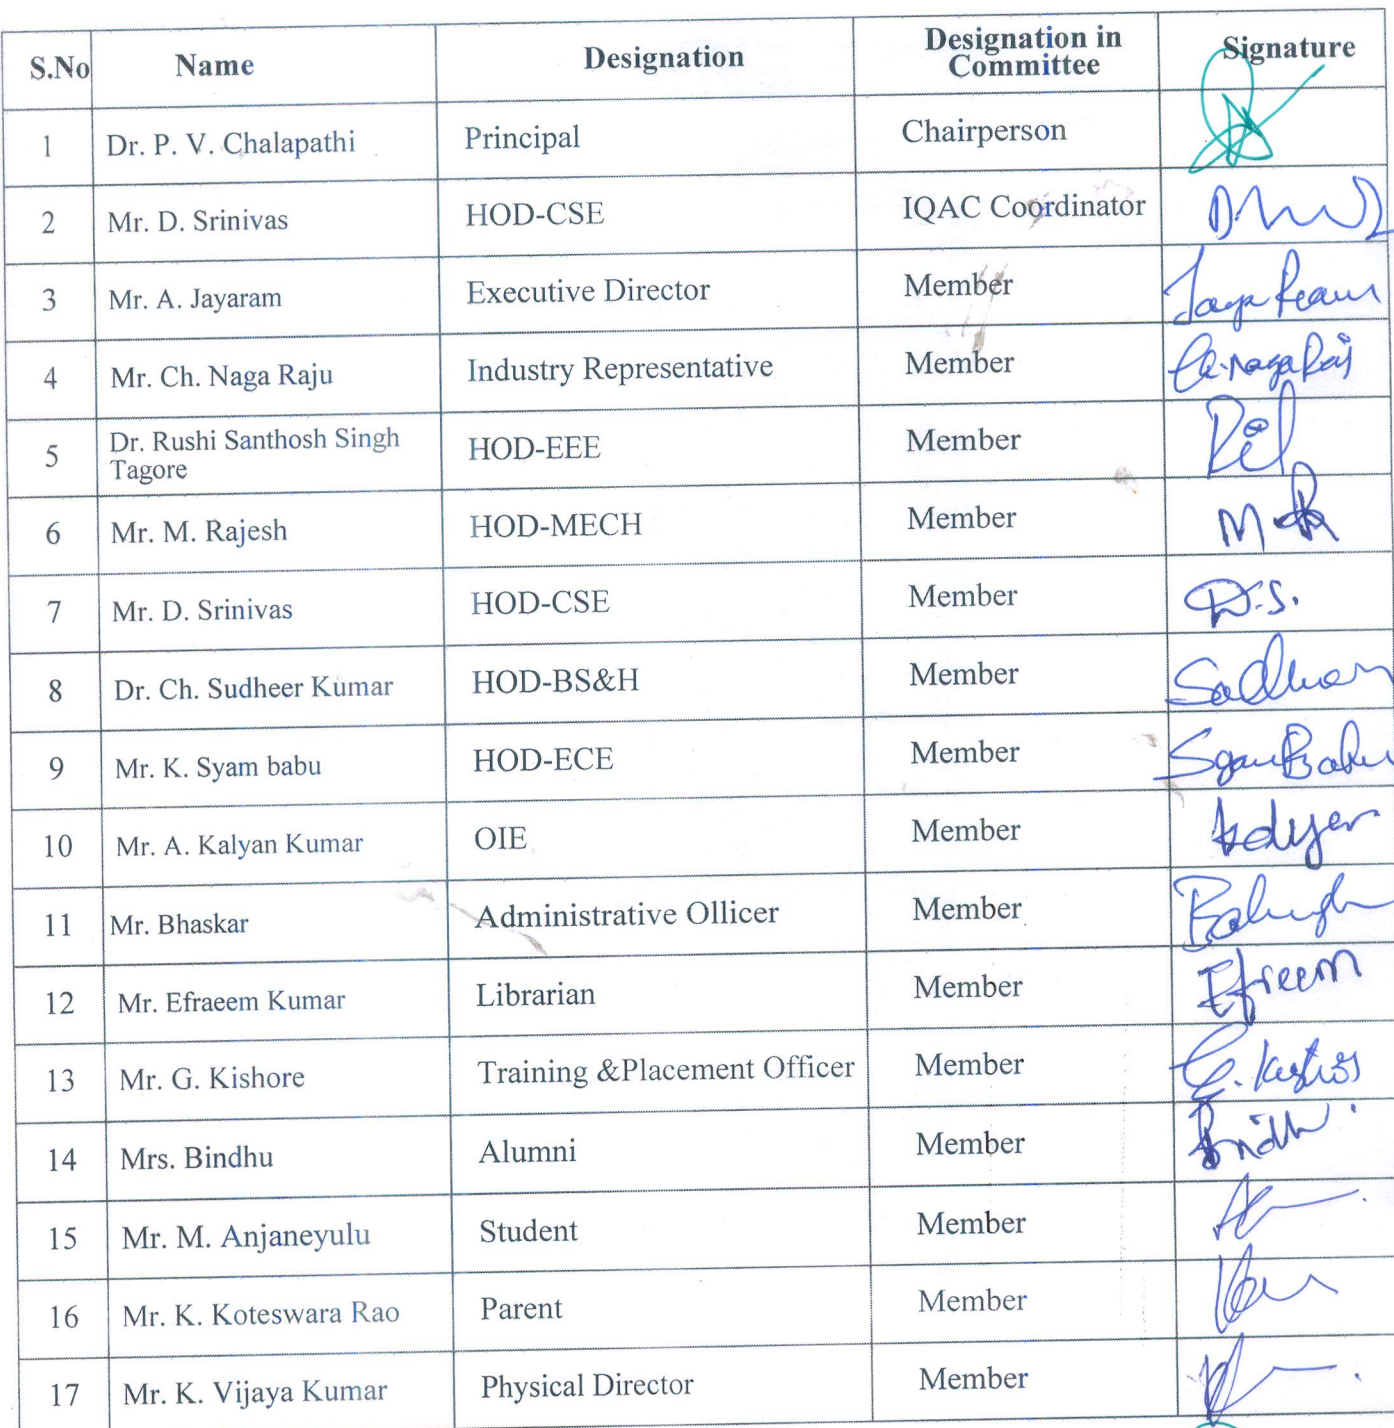 S.No Name Designation Designation in Committee Signature
1 Dr. P. V. Chalapathi Principal Chairperson
2 Mr. D. Srinivas HOD-CSE IQAC Coordinator
3 Mr. A. Jayaram Executive Director Member
4 Mr. Ch. Naga Raju Industry Representative Member Ch. Naga Raj
5 Dr. Rushi Santhosh Singh Tagore HOD-EEE Member
6 Mr. M. Rajesh HOD-MECH Member
7 Mr. D. Srinivas HOD-CSE Member D.S.
8 Dr. Ch. Sudheer Kumar HOD-BS&H Member
9 Mr. K. Syam babu HOD-ECE Member
10 Mr. A. Kalyan Kumar OIE Member
11 Mr. Bhaskar Administrative Ollicer Member
12 Mr. Efraeem Kumar Librarian Member Efreem
13 Mr. G. Kishore Training &Placement Officer Member
14 Mrs. Bindhu Alumni Member
15 Mr. M. Anjaneyulu Student Member
16 Mr. K. Koteswara Rao Parent Member
17 Mr. K. Vijaya Kumar Physical Director Member